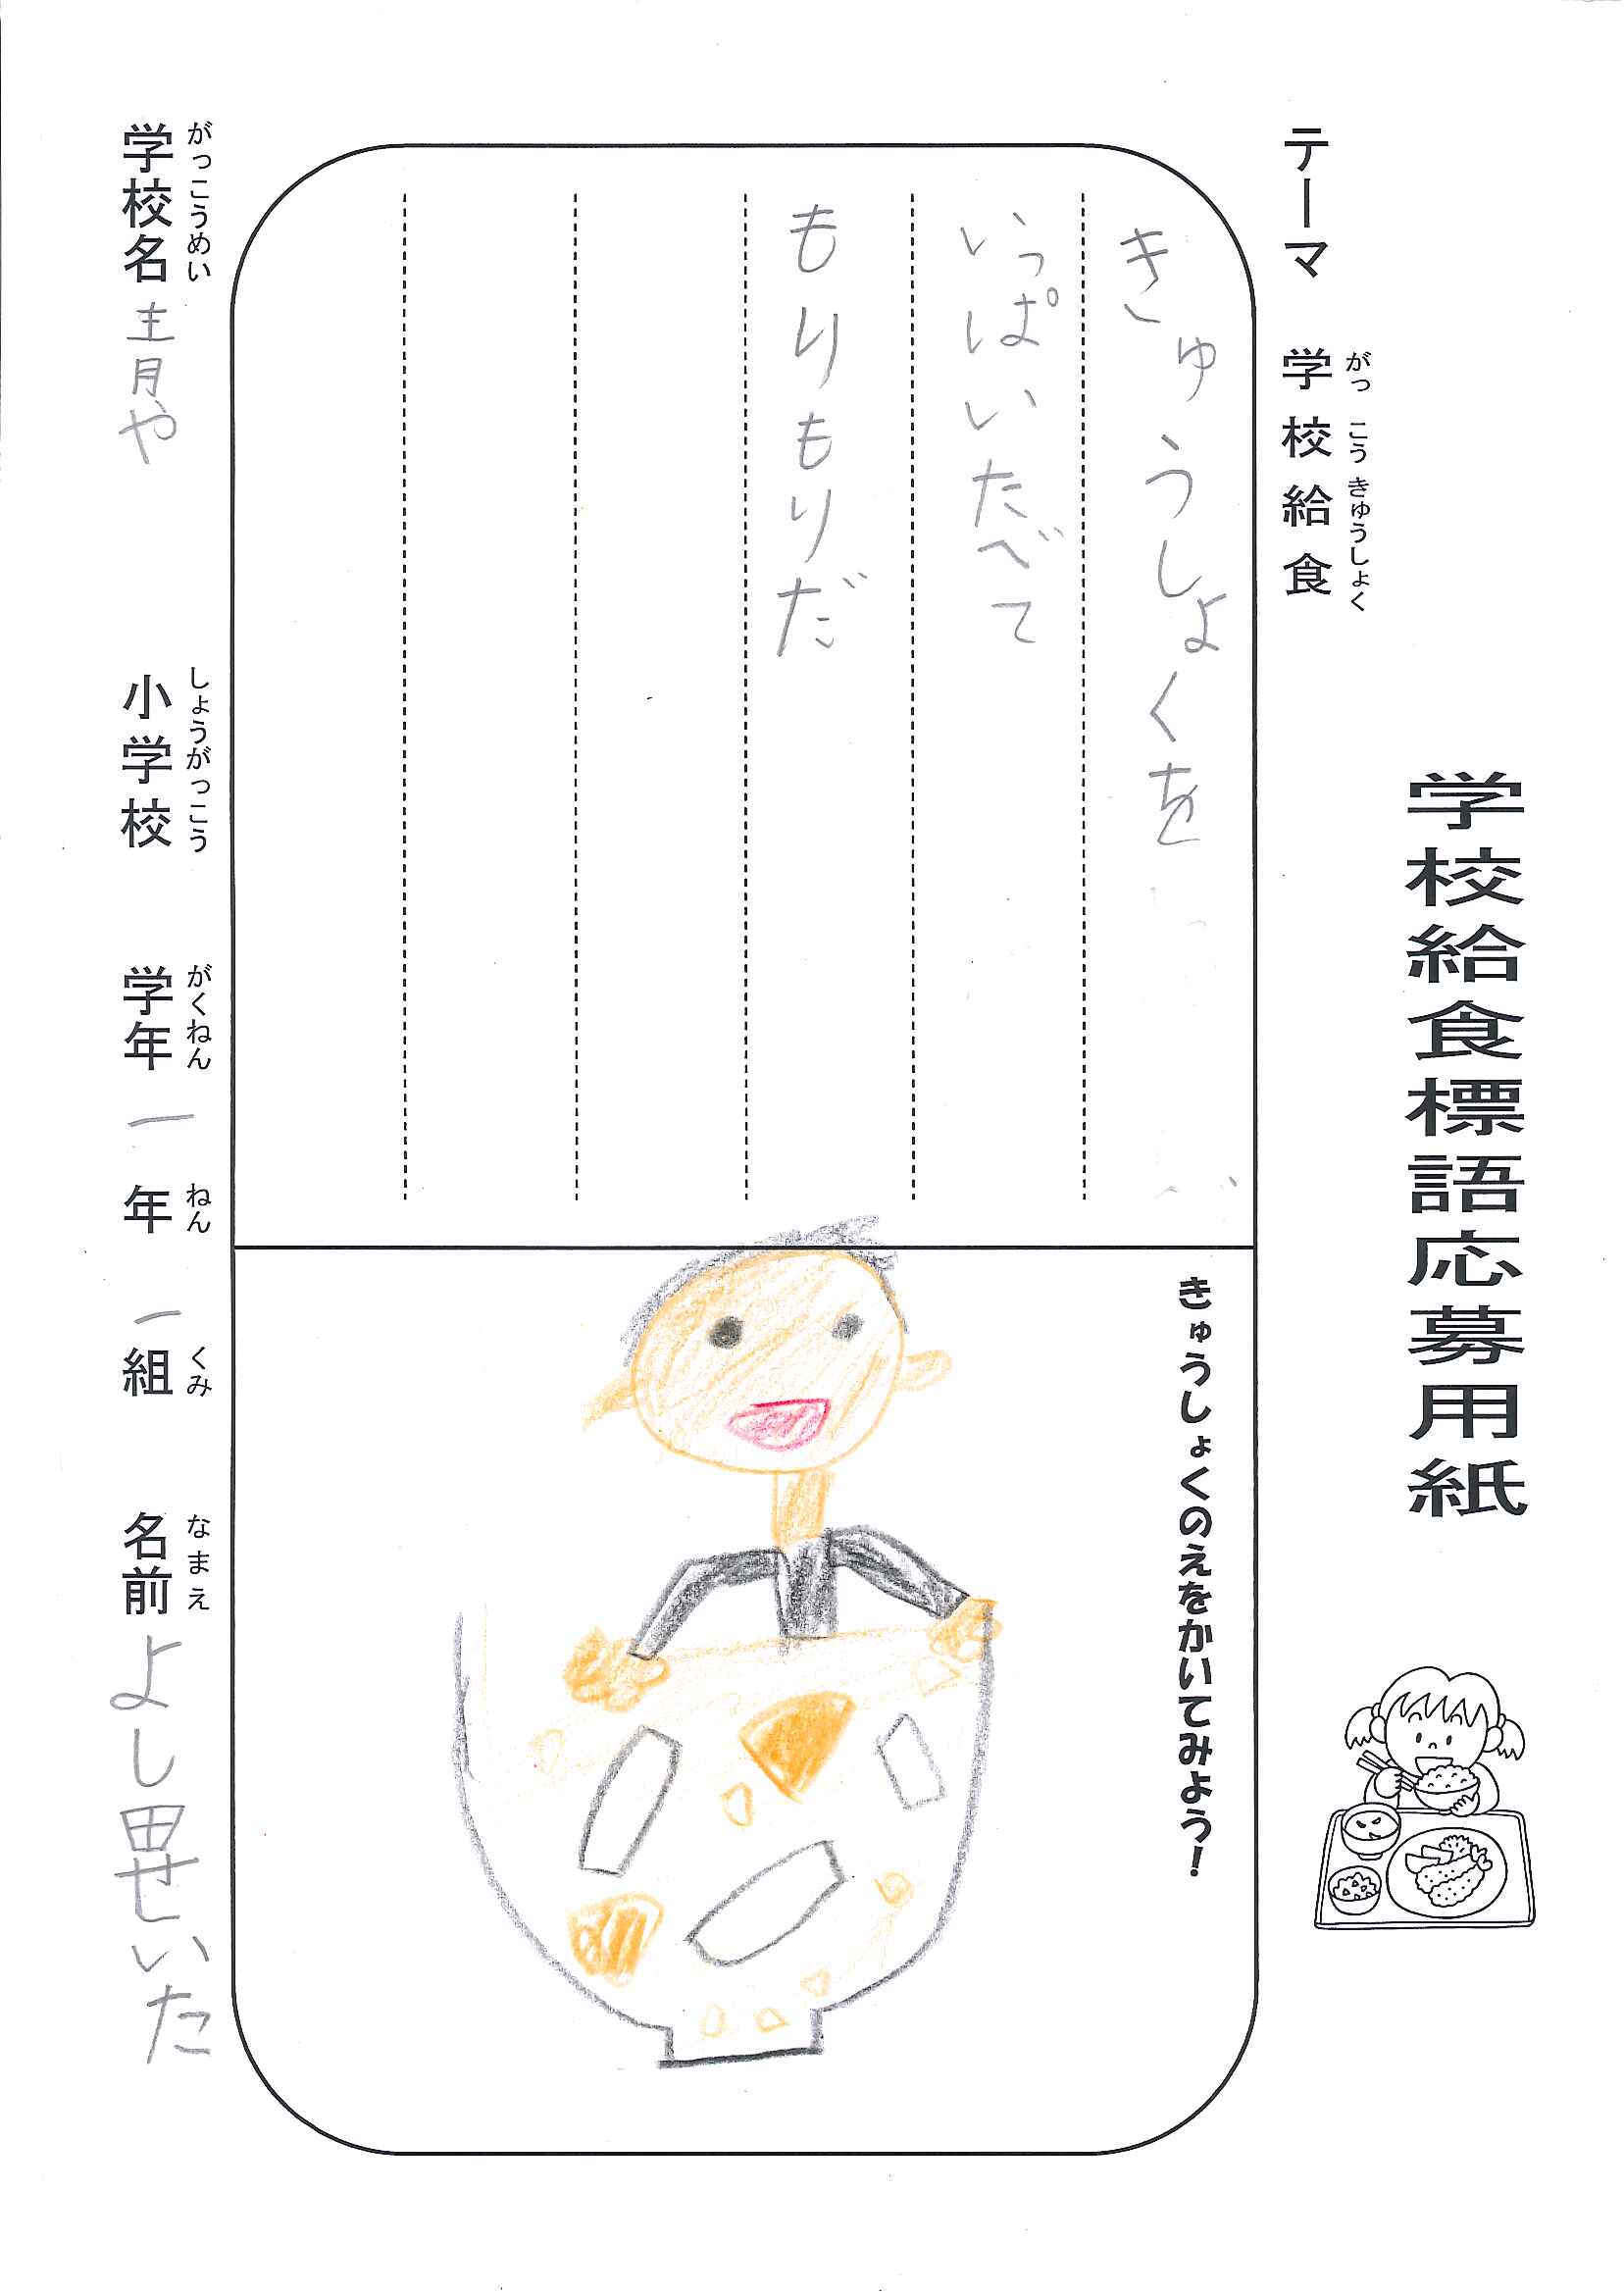 学校給食標語応募用紙
テーマ 学校給食
がっこうきゅうしょく
きゅうしょくを
いっぱいたべて
もりもりだ
きゅうしょくのえをかいてみよう!
がっこうめい しょうがっこう がくねん ねん くみ なまえ
学校名 青や 小学校 学年 一年 一組 名前 よし田せいた